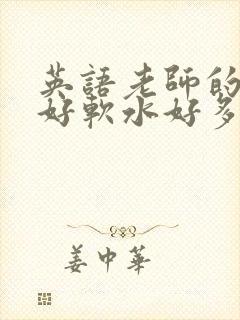 英語老師的
好軟水好多
姜中華